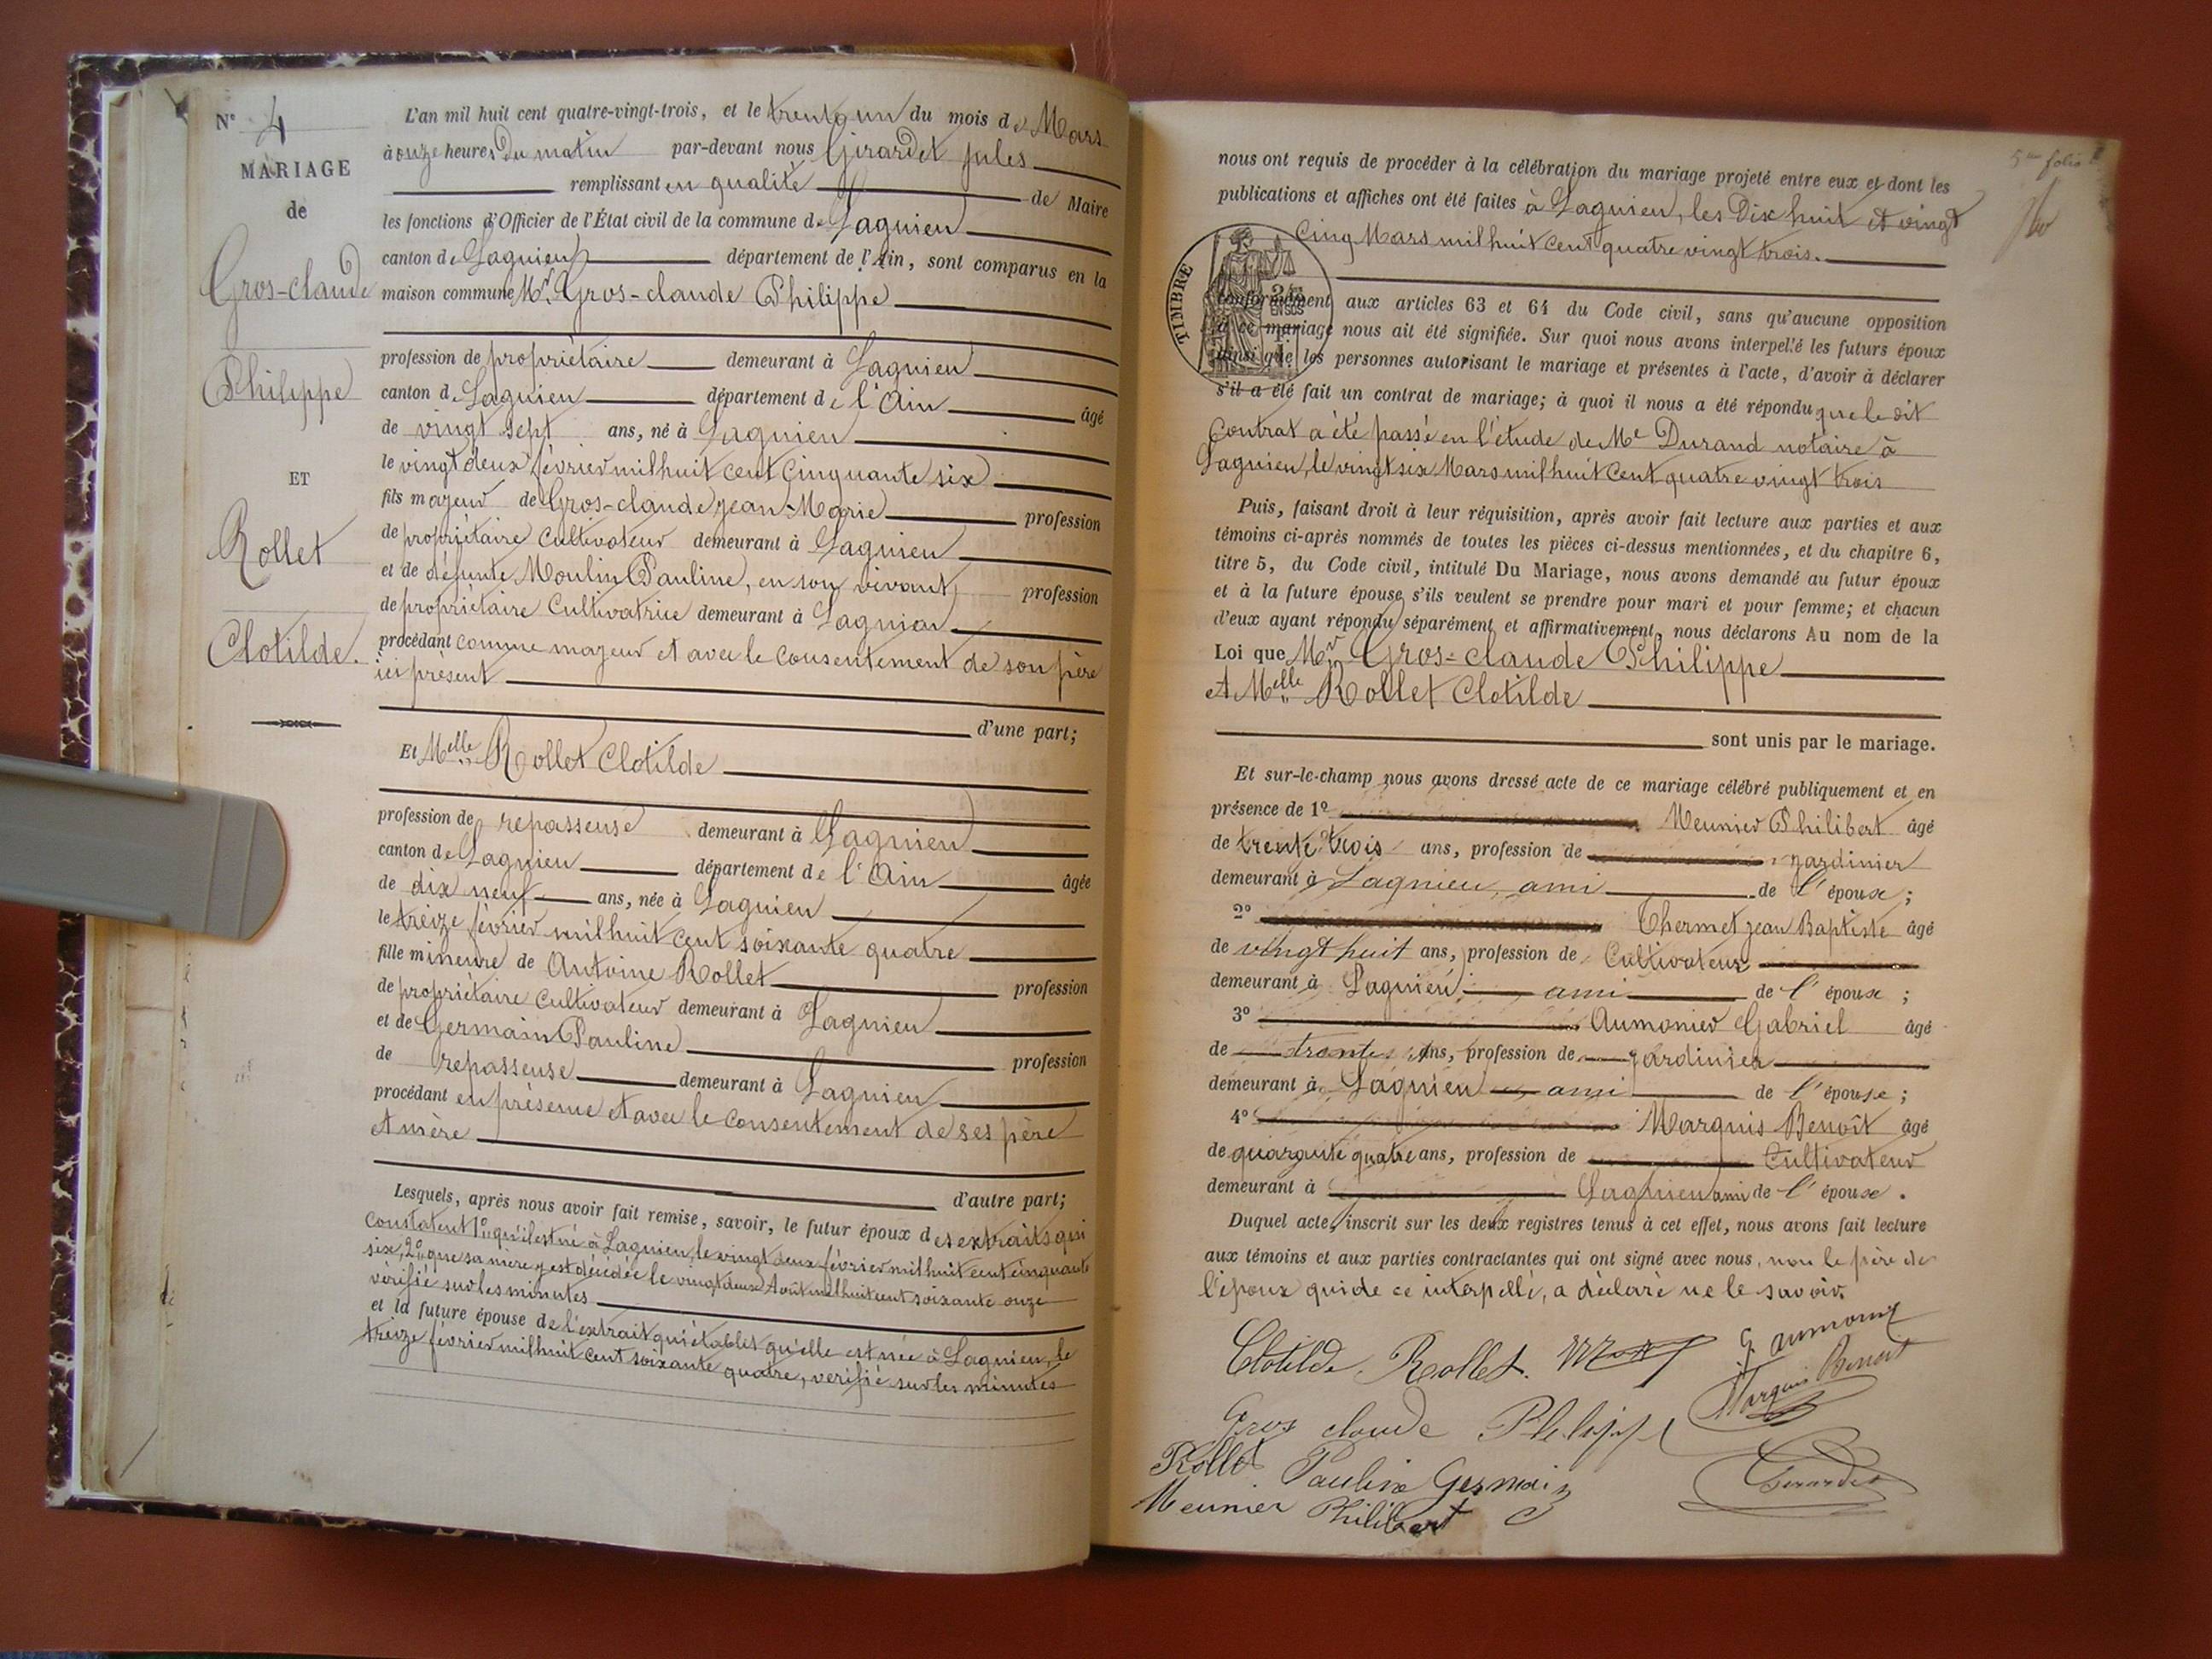 N° 4
MARIAGE
de
Gros-claude
Philippe
ET
Rollet
Clotilde.
L'an mil huit cent quatre-vingt-trois, et le trente un du mois de Mars
à onze heures du matin par-devant nous Girardet jules
remplissant en qualité de Maire
les fonctions d'Officier de l'État civil de la commune de Lagnieu
canton de Lagnieu département de l'Ain, sont comparus en la
maison commune Mr. Gros-claude Philippe
profession de propriétaire demeurant à Lagnieu
canton de Lagnieu département de l'Ain âgé
de vingt sept ans, né à Lagnieu
le vingt deux février mil huit cent cinquante six
fils majeur de Gros-claude jean-Marie profession
de propriétaire cultivateur demeurant à Lagnieu
et de défunte Moulin Pauline, en son vivant profession
de propriétaire Cultivatrice demeurant à Lagnieu
procédant comme majeur et avec le consentement de son père
ici présent
d'une part;
Et Melle Rollet Clotilde
profession de repasseuse demeurant à Lagnieu
canton de Lagnieu département de l'Ain âgée
de dix neuf ans, née à Lagnieu
le treize février mil huit cent soixante quatre
fille mineure de Antoine Rollet profession
de propriétaire cultivateur demeurant à Lagnieu
et de Germain Pauline profession
de repasseuse demeurant à Lagnieu
procédant en présence et avec le consentement de ses père
et mère
d'autre part;
Lesquels, après nous avoir fait remise, savoir, le futur époux des extraits qui
constatent 1° qu'il est né à Lagnieu, le vingt deux février mil huit cent cinquante
six, 2° que sa mère y est décédée le vingt deux Août mil huit cent soixante onze
vérifié sur les minutes
et la future épouse de l'extrait qui établit qu'elle est née à Lagnieu, le
treize février mil huit cent soixante quatre, vérifié sur les minutes
5me folio
nous ont requis de procéder à la célébration du mariage projeté entre eux et dont les
publications et affiches ont été faites à Lagnieu, les Dix huit et vingt
Cinq Mars mil huit cent quatre vingt trois.
TIMBRE
EN SUS
conformément aux articles 63 et 64 du Code civil, sans qu'aucune opposition
à ce mariage nous ait été signifiée. Sur quoi nous avons interpellé les futurs époux
ainsi que les personnes autorisant le mariage et présentes à l'acte, d'avoir à déclarer
s'il a été fait un contrat de mariage; à quoi il nous a été répondu que le dit
Contrat a été passé en l'étude de Me Durand notaire à
Lagnieu, le vingt six Mars mil huit cent quatre vingt trois
Puis, faisant droit à leur réquisition, après avoir fait lecture aux parties et aux
témoins ci-après nommés de toutes les pièces ci-dessus mentionnées, et du chapitre 6,
titre 5, du Code civil, intitulé Du Mariage, nous avons demandé au futur époux
et à la future épouse s'ils veulent se prendre pour mari et pour femme; et chacun
d'eux ayant répondu séparément et affirmativement, nous déclarons Au nom de la
Loi que Mr Gros-claude Philippe
et Melle Rollet Clotilde
sont unis par le mariage.
Et sur-le-champ nous avons dressé acte de ce mariage célébré publiquement et en
présence de 1° Meunier Philibert âgé
de trente trois ans, profession de jardinier
demeurant à Lagnieu, ami de l'époux;
2° Thermet jean Baptiste âgé
de vingt huit ans, profession de Cultivateur
demeurant à Lagnieu ami de l'époux;
3° Aumonier Gabriel âgé
de trente ans, profession de jardinier
demeurant à Lagnieu ami de l'épouse;
4° Marquis Benoît âgé
de quarante quatre ans, profession de Cultivateur
demeurant à Lagnieu ami de l'épouse.
Duquel acte, inscrit sur les deux registres tenus à cet effet, nous avons fait lecture
aux témoins et aux parties contractantes qui ont signé avec nous, non le père de
l'époux qui de ce interpellé, a déclaré ne le savoir.
Clotilde Rollet. G aumonier
Marquis Benoit
Gros claude Philippe
Rollet Pauline Germain Girardet
Meunier Philibert